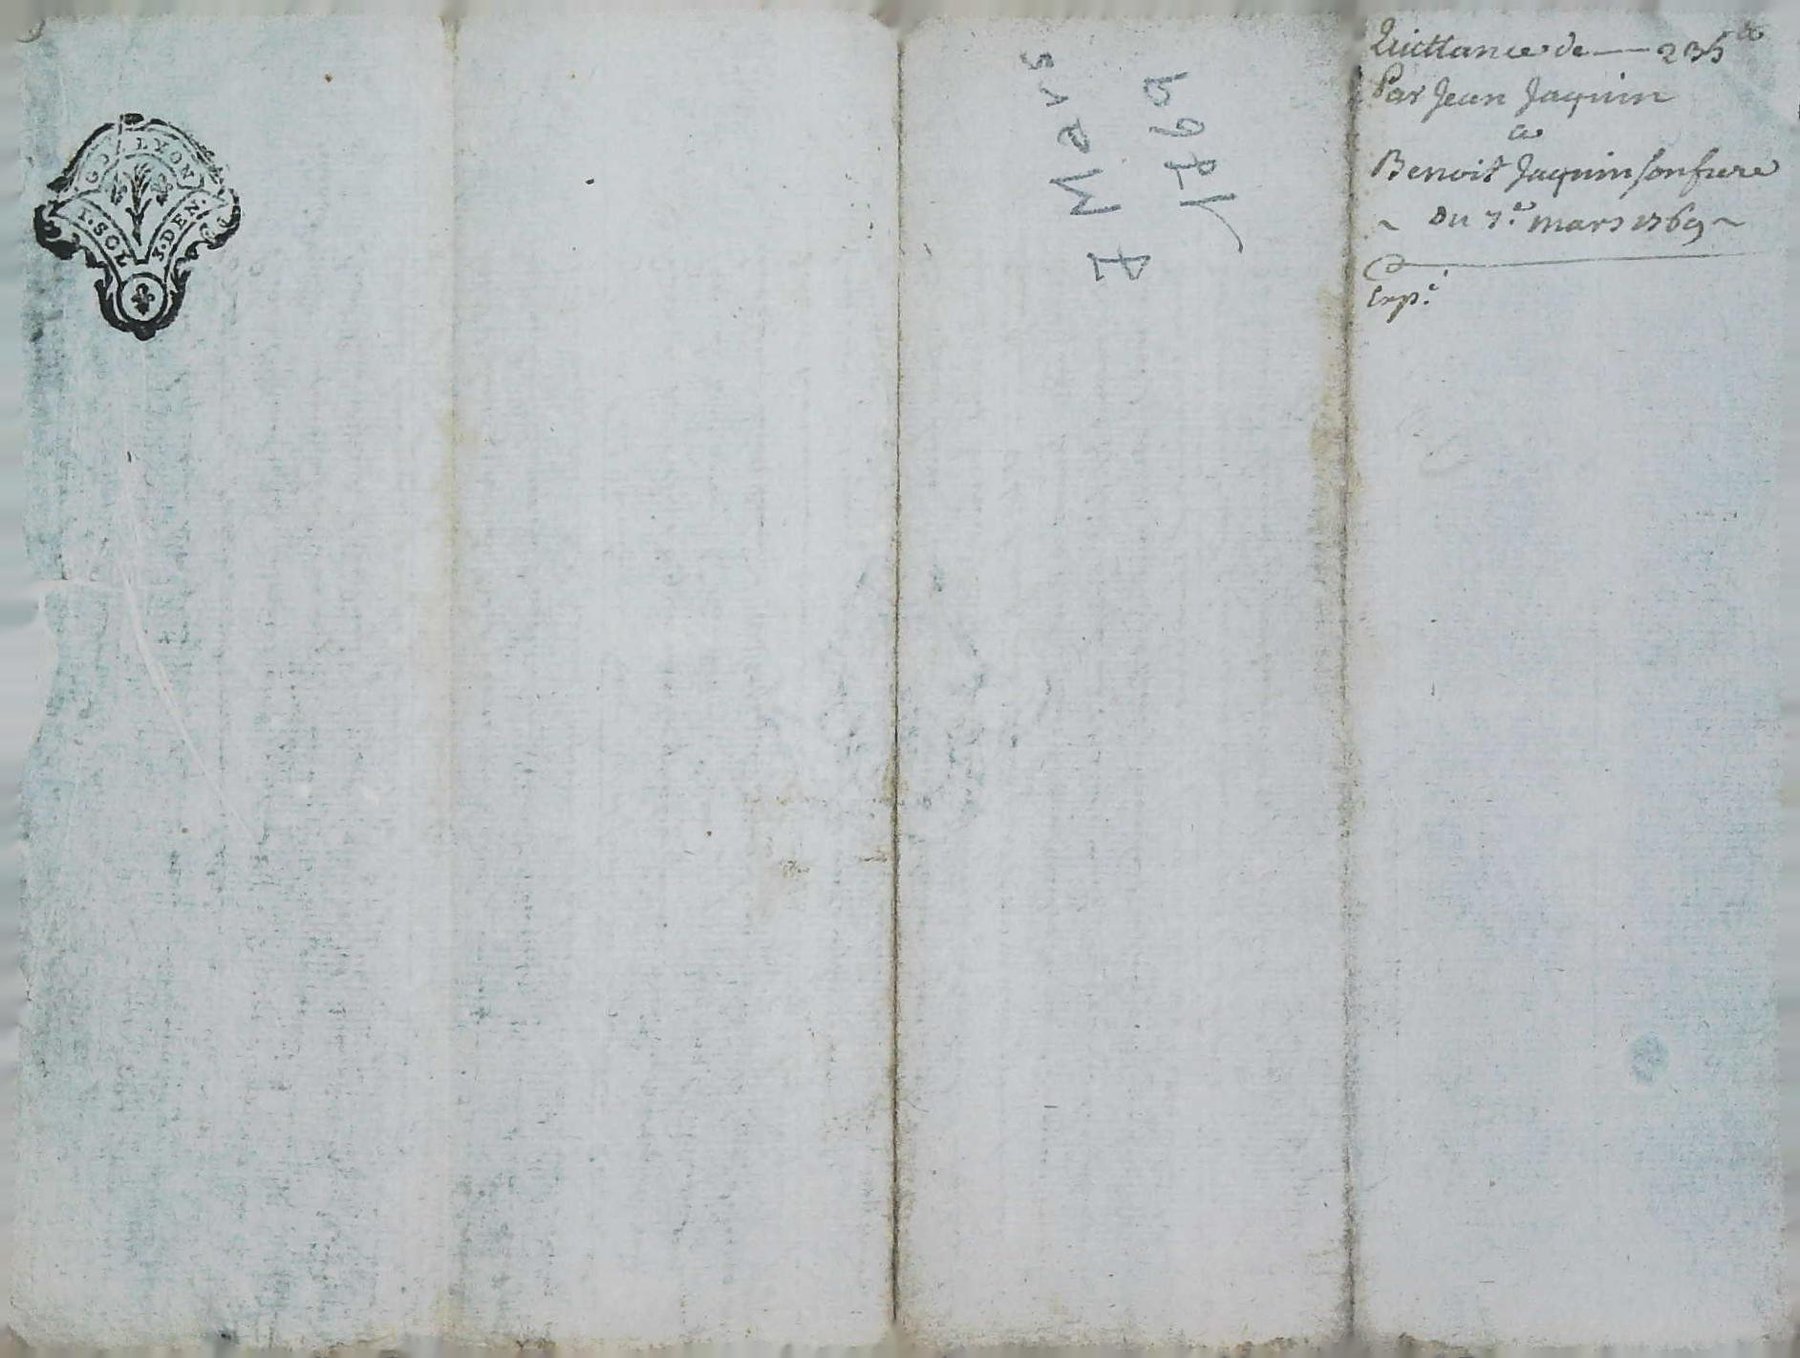 G. DE LYON
1. SOL 3. DEN.
7 Mars
1769
Quittance de — 235 ₶
Par Jean Jaquin
a
Benoit Jaquin son frere
~ Du 7.e mars 1769 ~
Exp.é